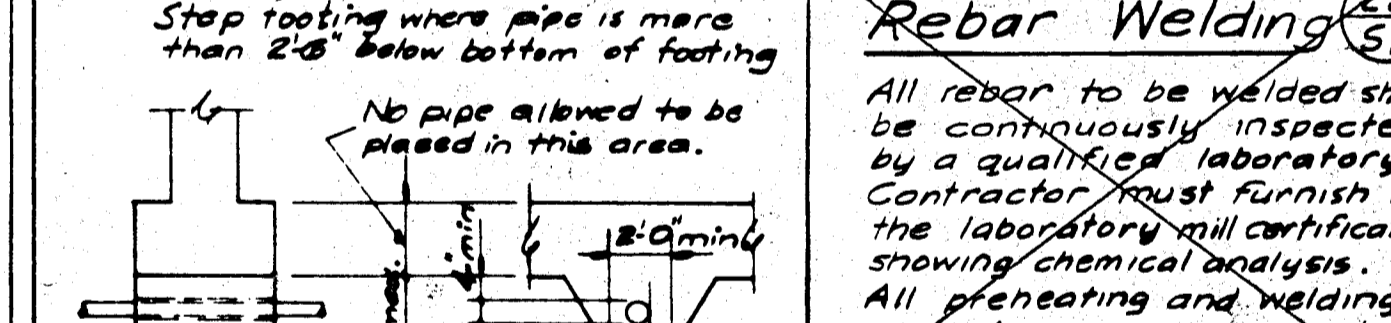 Step footing where pipe is more
than 2'-6" below bottom of footing
No pipe allowed to be
placed in this area.
4" min
2'-0" min
Rebar Welding
All rebar to be welded
be continuously
by a qualified laboratory
Contractor must furnish
the laboratory mill
showing chemical analysis.
All preheating and welding